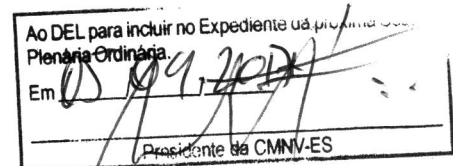 Ao DEL para incluir no Expediente da próxima
Plenária Ordinária.
Em
Presidente da CMNV-ES